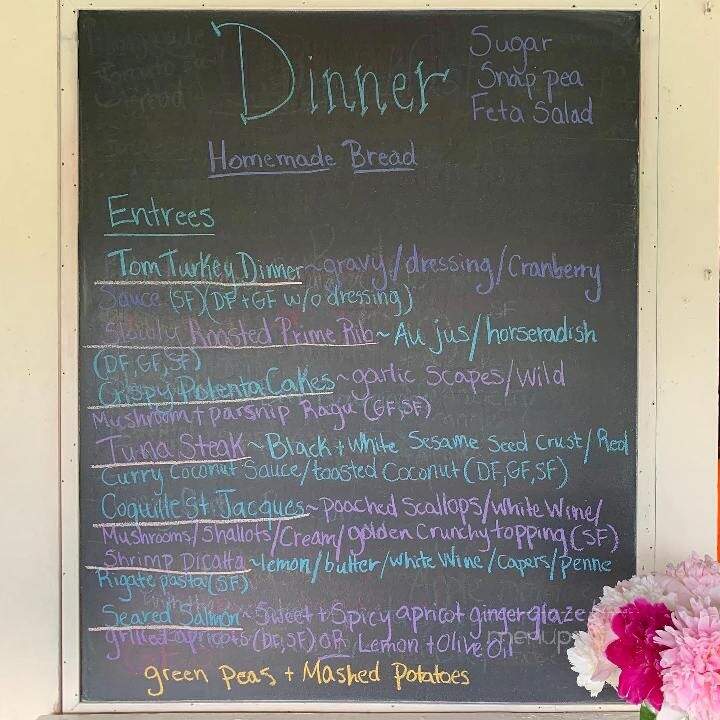 Dinner
Sugar
Snap pea
Feta Salad
Homemade Bread
Entrees
Tom Turkey Dinner~gravy/dressing/Cranberry
Sauce (SF)(DF+GF w/o dressing)
Slowly Roasted Prime Rib~Au jus/horseradish
(DF,GF,SF)
Crispy Polenta Cakes~garlic Scapes/Wild
Mushroom+parsnip Ragu (GF,SF)
Tuna Steak~Black+White Sesame Seed Crust/Red
Curry Coconut Sauce/toasted Coconut (DF,GF,SF)
Coquille St. Jacques~poached Scallops/White Wine/
Mushrooms/Shallots/Cream/golden Crunchy topping (SF)
Shrimp Picatta~lemon/butter/white Wine/Capers/penne
Rigate pasta(SF)
Seared Salmon~Sweet+Spicy apricot ginger glaze
grilled apricots (DF,SF) OR Lemon+Olive Oil
green Peas + Mashed Potatoes